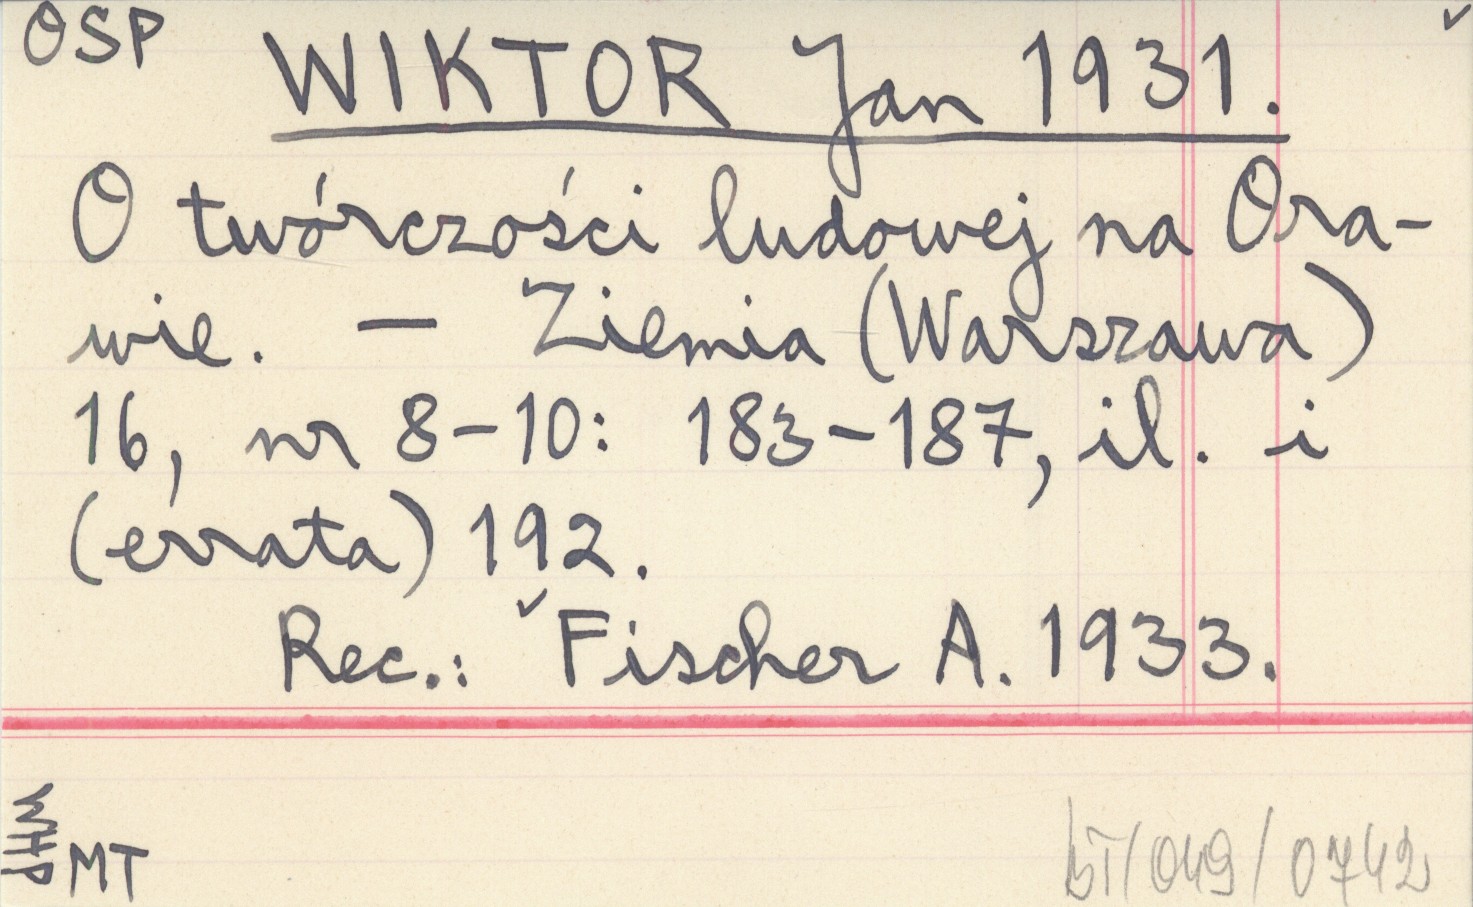 OSP
WIKTOR Jan 1931.
O twórczości ludowej na Ora-
wie. — Ziemia (Warszawa)
16, nr 8-10: 183-187, il. i
(errata) 192.
Rec.: Fischer A. 1933.
WHP
MT
bT/049/0742